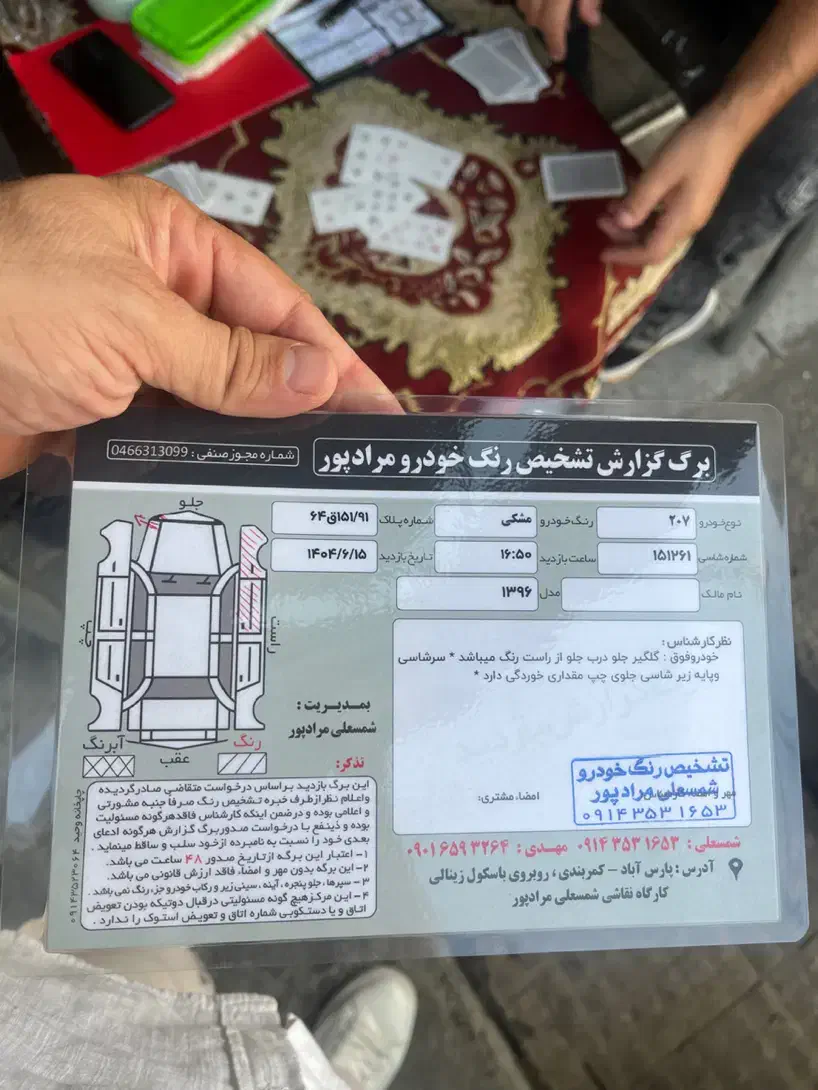 برگ گزارش تشخیص رنگ خودرو مرادپور
شماره مجوز صنفی : 0466313099
نوع خودرو ۲۰۷ رنگ خودرو مشکی شماره پلاک ۶۴ق۱۵۱/۹۱
شماره شاسی ۱۵۱۲۶۱ ساعت بازدید ۱۶:۵۰ تاریخ بازدید ۱۴۰۴/۶/۱۵
نام مالک مدل ۱۳۹۶
نظرکارشناس:
خودروفوق : گلگیر جلو درب جلو از راست رنگ میباشد * سرشاسی
وپایه زیر شاسی جلوی چپ مقداری خوردگی دارد *
امضاء مشتری:
تشخیص رنگ خودرو
شمسعلی مرادپور
۰۹۱۴ ۳۵۳ ۱۶۵۳
جلو
راست
چپ
عقب
رنگ
آبرنگ
بمدیریت :
شمسعلی مرادپور
تذکر:
این برگ بازدید براساس درخواست متقاضی صادرگردیده
واعلام نظرازطرف خبره تشخیص رنگ صرفا جنبه مشورتی
و اعلامی بوده و درضمن اینکه کارشناس فاقدهرگونه مسئولیت
بوده و ذینفع با درخواست صدوربرگ گزارش هرگونه ادعای
بعدی خود را نسبت به نامبرده ازخود سلب و ساقط مینماید .
۱- اعتبار این برگه ازتاریخ صدور ۴۸ ساعت می باشد.
۲- این برگه بدون مهر و امضاء، فاقد ارزش قانونی می باشد.
۳- سپرها، جلوپنجره، آینه، سینی زیر و رکاب خودرو جزء رنگ نمی باشد.
۴- این مرکزهیچ گونه مسئولیتی درقبال دوتیکه بودن تعویض
اتاق و یا دستکوبی شماره اتاق و تعویض استوک را ندارد .
شمسعلی : ۰۹۱۴ ۳۵۳ ۱۶۵۳ مهدی : ۰۹۰۱ ۶۵۹ ۳۲۶۴
آدرس : پارس آباد - کمربندی ، روبروی باسکول زینالی
کارگاه نقاشی شمسعلی مرادپور
چاپخانه وحید ۰۹۱۴۳۵۲۳۰۶۴